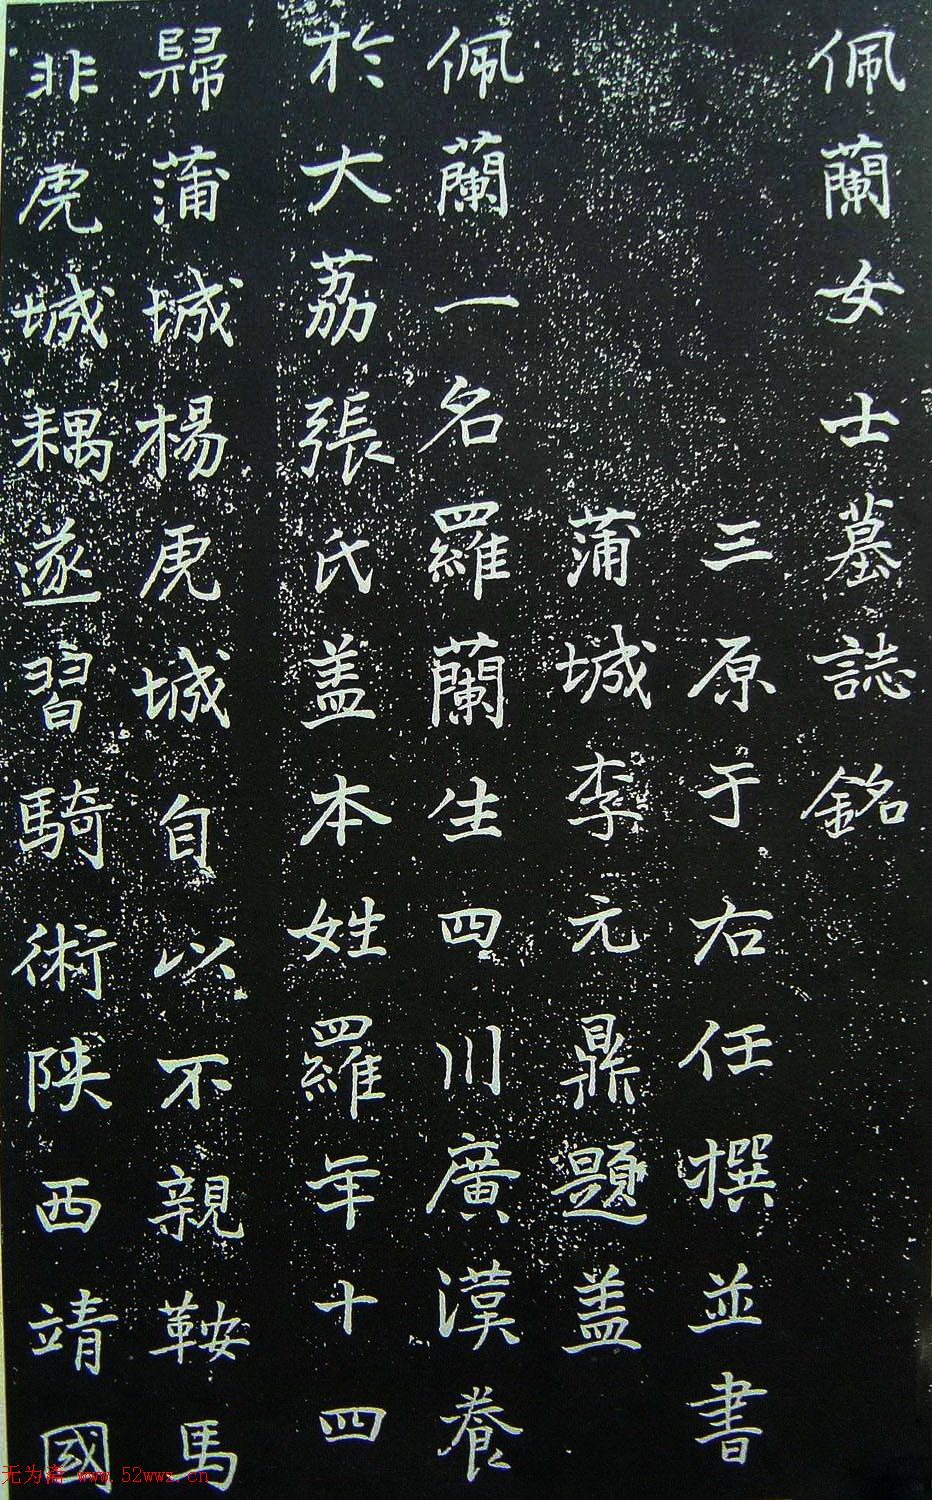 佩蘭女士墓誌銘
三原于右任撰並書
蒲城李元鼎題盖
佩蘭一名羅蘭生四川廣漢養
於大荔張氏盖本姓羅年十四
歸蒲城楊虎城自以不親鞍馬
非虎城耦遂習騎術陕西靖國
无为斋 www.52wwz.cn